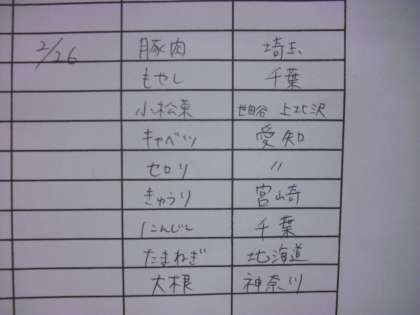 2/26 豚肉 埼玉
もやし 千葉
小松菜 世田谷 上北沢
キャベツ 愛知
セロリ 〃
きゅうり 宮崎
にんじん 千葉
たまねぎ 北海道
大根 神奈川